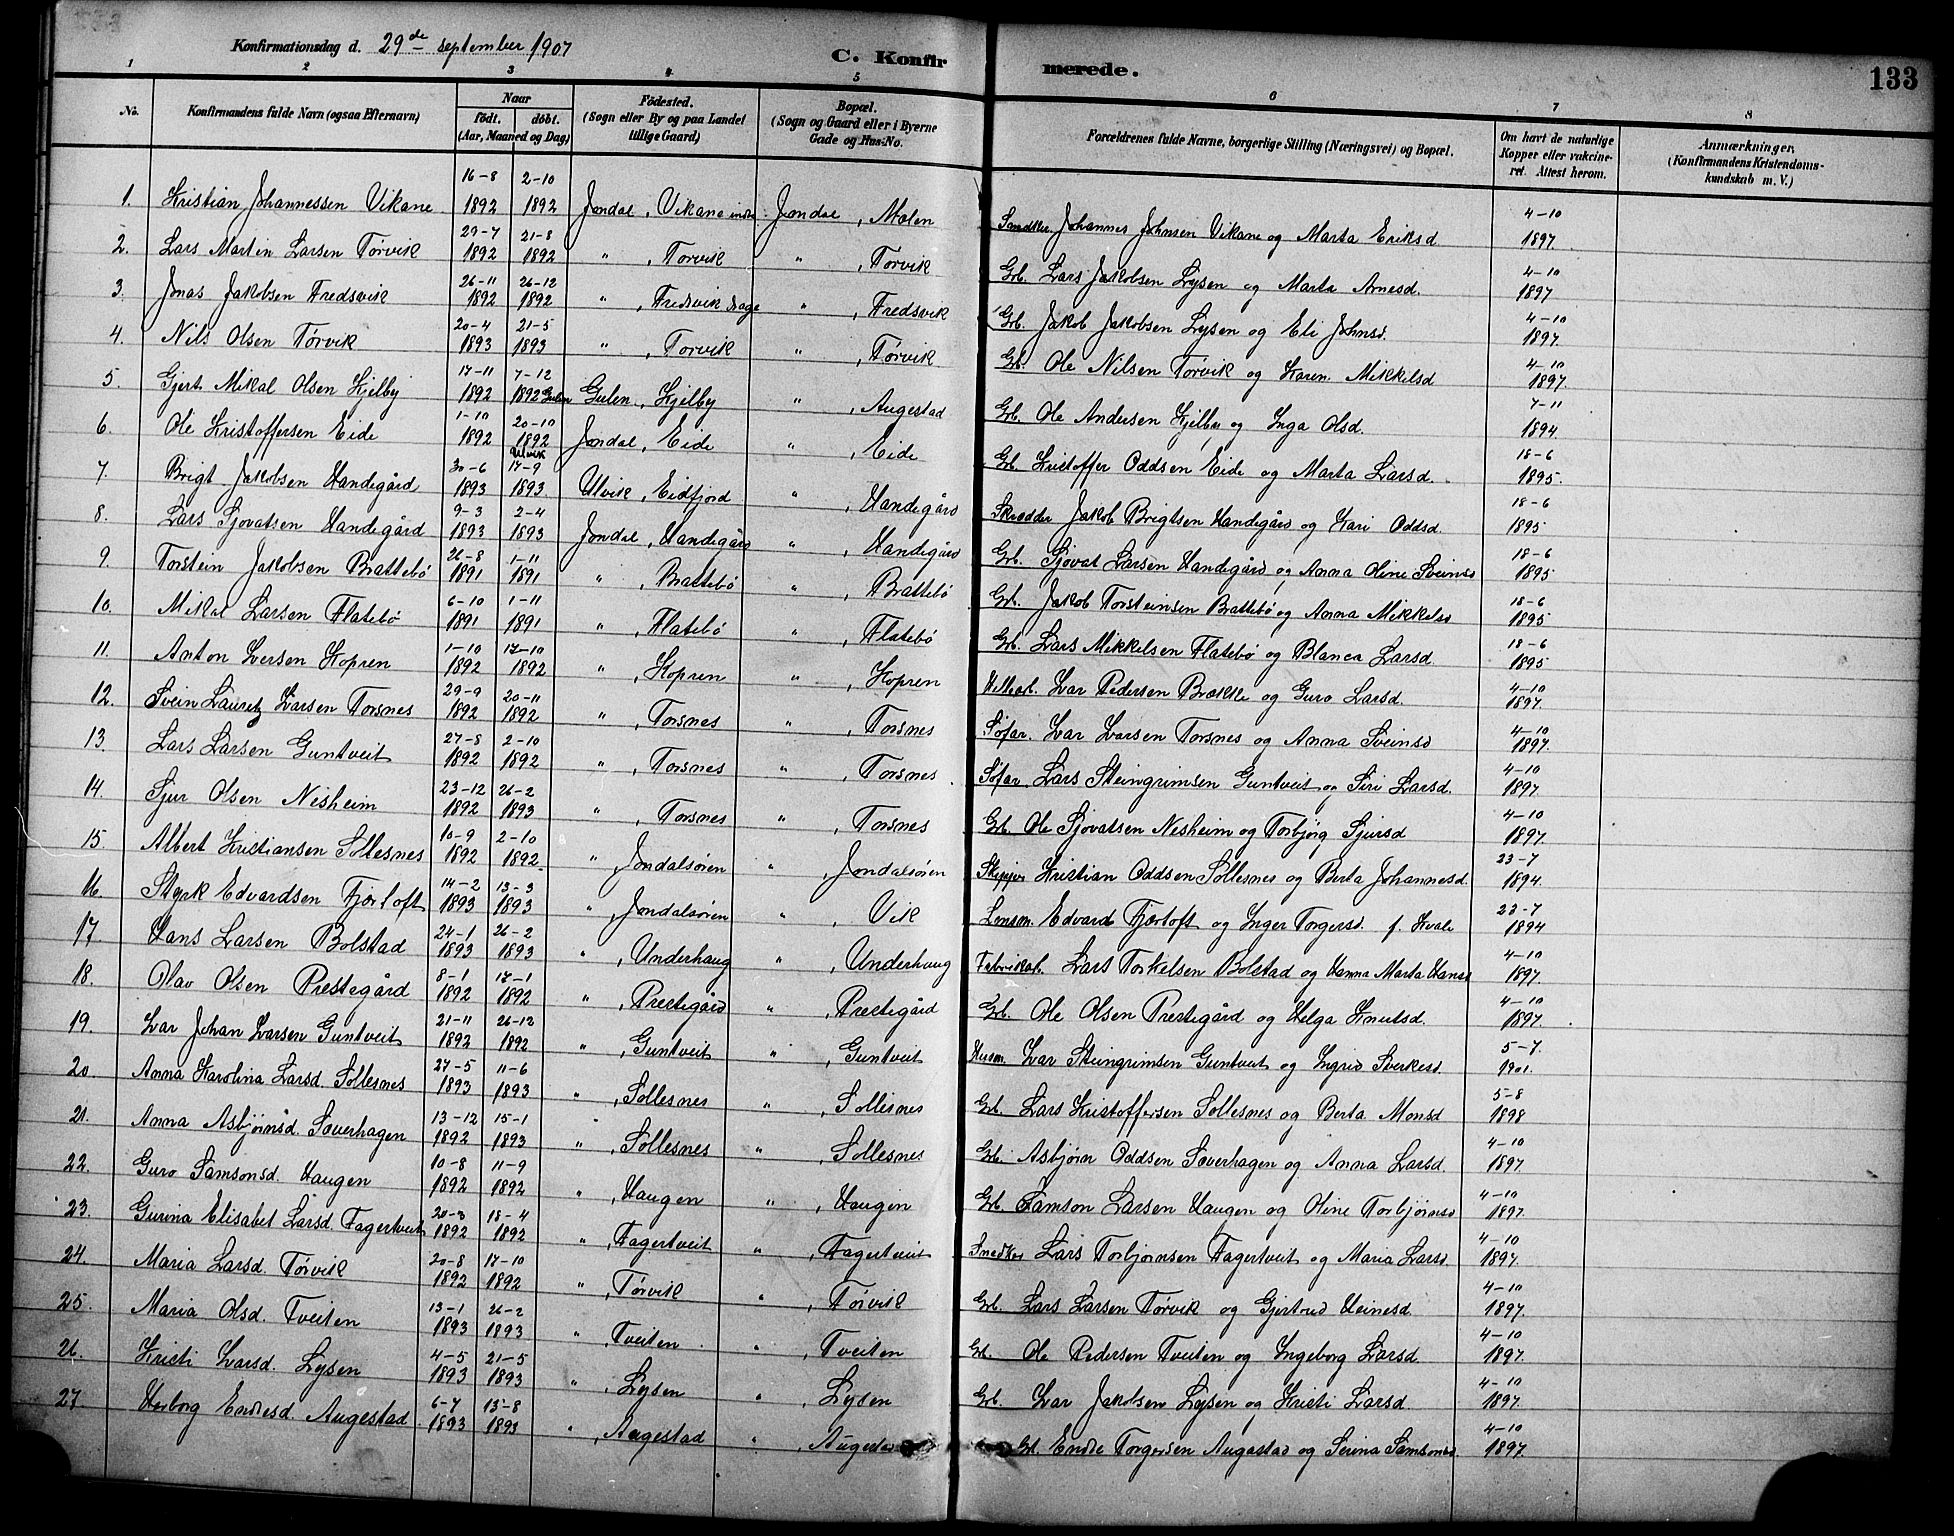 Konfirmationsdag d. 29de september 1907
C. Konfirmerede.
133
1 2 3 4 5 6 7 8
No. Konfirmandens fulde Navn (ogsaa Efternavn) Naar födt. döbt. (Aar, Maaned og Dag) Födested. (Sogn eller By og paa Landet tillige Gaard) Bopæl. (Sogn og Gaard eller i Byerne Gade og Hus-No. Forældrenes fulde Navne, borgerlige Stilling (Næringsvei) og Bopæl. Om havt de naturlige Kopper eller vakcineret. Attest herom. Anmærkninger. (Konfirmandens Kristendomskundskab m. V.)
1. Kristian Johannessen Vikane 16-8 1892 2-10 1892 Jondal, Vikane indre Jondal, Molen Johannes Johnsen Vikane og Marta Eriksd 4-10 1897
2. Lars Martin Larsen Törvik 29-7 1892 21-8 1892 " , Torvik " , Torvik Gb. Lars Jakobsen Lysen og Marta Arnesd. 4-10 1897
3. Jonas Jakobsen Fredsvik 26-11 1892 26-12 1892 " , Fredsvik " , Fredsvik Gb. Jakob Jakobsen Lysen og Eli Johnsd. 4-10 1897.
4. Nils Olsen Törvik 20-4 1893 21-5 1893 " , Torvik " , Törvik Gb. Ole Nilsen Törvik og Karen Mikkelsd 4-10 1897.
5. Gjert Mikal Olsen Kjelby 17-11 1892 7-12 1892 Gulen Gulen, Kjelby " , Augestad Gb. Ole Andersen Kjelby og Inga Olsd. 7-11 1894.
6. Ole Kristoffersen Eide 1-10 1892 20-10 1892 Jondal, Eide " , Eide Gb. Kristoffer Oddsen Eide og Marta Larsd. 18-6 1895.
7. Brigt Jakobsen Handegård 30-6 1893 Ulvik 17-9 1893. Ulvik, Eidfjord " , Handegård Skrædder Jakob Brigtsen Handegård og Kari Oddsd. 18-6 1895
8. Lars Sjovatsen Handegård 9-3 1893 2-4 1893 Jondal, Handegård " , Handegård Gb. Sjovat Larsen Handegård og Anna Oline Sveinsd 18-6 1895
9. Torstein Jakobsen Brattebö 26-8 1891 1-11 1891 " , Brattebö " , Brattebö Gb. Jakob Torsteinsen Brattebö og Anna Mikkelsd 18-6 1895
10. Mikal Larsen Flatebö 6-10 1891 1-11 1891 " , Flatebö " , Flatebö Gb. Lars Mikkelsen Flatebö og Blanca Larsd. 18-6 1895
11. Anton Iversen Kopren 1-10 1892 17-10 1892 " , Kopren " , Kopren Ivar Pedersen Brække og Guro Larsd. 4-10 1897.
12. Svein Lauretz Ivarsen Torsnes 29-9 1892 20-11 1892 " , Torsnes " , Torsnes Söfar. Ivar Ivarsen Torsnes og Anna Sveinsd 4-10 1897.
13. Lars Larsen Guntveit 27-8 1892 2-10 1892 " , Torsnes " , Torsnes. Söfar. Lars Steingrimsen Guntveit og Siri Larsd. 4-10 1897.
14. Sjur Olsen Nesheim 23-12 1892 26-2 1893 " , Torsnes " , Torsnes Gb. Ole Sjovatsen Nesheim og Torbjörg Sjursd 4-10 1897.
15 Albert Kristiansen Sollesnes 10-9 1892 2-10 1892. " , Jondalsören " , Jondalsören Skipper Kristian Oddsen Sollesnes og Berta Johannesd. 23-7 1894.
16. Styrk Edvardsen Fjærtoft 14-2 1893 13-3 1893 " , Jondalsören " , Vik Lensm. Edvard Fjærtoft og Inger Torgersd. f. Kvale 23-7 1894
17. Hans Larsen Bolstad 24-1 1893 26-2 1893 " , Underhaug " , Underhaug Fabrikarb. Lars Torkelsen Bolstad og Hanna Marta Hansd 4-10 1897.
18. Olav Olsen Prestegård 8-1 1892 17-1 1892 " , Prestegård " , Prestegård Gb. Ole Olsen Prestegård og Helga Knutsd. 4-10 1897.
19. Ivar Johan Ivarsen Guntveit 21-11 1892 26-12 1892 " , Guntveit " , Guntveit Husm. Ivar Steingrimsen Guntveit og Ingrid Sverkesd. 5-7. 1901.
20 Anna Karolina Larsd. Sollesnes 27-5 1893 11-6 1893 " , Sollesnes " , Sollesnes Gb. Lars Kristoffersen Sollesnes og Berta Monsd 5-8 1898
21. Anna Asbjörnsd. Saverhagen 13-12 1892 15-1 1893 " , Sollesnes " , Sollesnes Gb. Asbjörn Oddsen Saverhagen og Anna Larsd. 4-10 1897.
22. Guro Samsonsd. Haugen 10-8 1892 11-9 1892 " , Haugen " , Haugen Gb. Samson Larsen Haugen og Oline Torbjörnsd 4-10 1897.
23. Gurina Elisabet Larsd. Fagertveit 20-3 1892 18-4 1892 " , Fagertveit " , Fagertveit Snedker Lars Torbjörnsen Fagertveit og Maria Larsd. 4-10 1897.
24. Maria Larsd. Törvik 20-8 1892 17-10 1892 " , Törvik " , Törvik Gb. Lars Larsen Törvik og Gjertrud Heinesd. 4-10 1897.
25. Maria Olsd. Tveiten 13-1 1893 26-2 1893 " , Tveiten " , Tveiten Gb. Ole Pedersen Tveiten og Ingeborg Larsd. 4-10 1897.
26. Kristi Ivarsd. Lysen 4-5 1893 21-5 1893 " , Lysen " , Lysen Gb. Ivar Jakobsen Lysen og Kristi Larsd 4-10 1897.
27. Herborg Endresd. Augestad 6-7 1893 13-8 1893 " , Augestad " , Augestad Gb. Endre Torgersen Augastad og Serina Samsonsd. 4-10 1897.